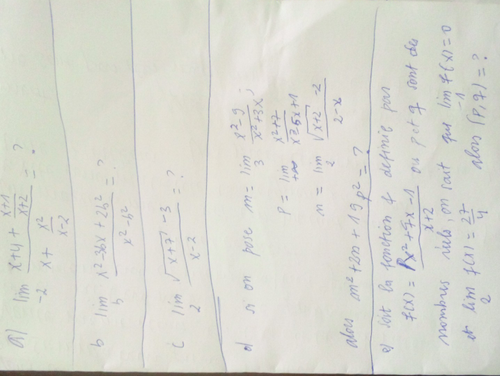 a) lim_{-2} (x+4 + (x+1)/(x+2)) / (x + x²/(x-2)) = ?
b lim_{b} (x²-3bx+2b²) / (x²-b²) = ?
c lim_{2} (√(x+7) -3) / (x-2) = ?
d) si on pose m = lim_{3} (x²-9)/(x²+3x) ;
p = lim_{+∞} (x²+7)/(x²5x+1)
n = lim_{2} (√(x+2) -2)/(2-x)
alors m²+2n+19p² = ?
e) Soit la fonction f definie par
f(x) = (Px²+qx-1)/(x+2) ou p et q sont des
nombres réels on sait que lim_{-1} f(x)=0
et lim_{2} f(x) = 27/4 alors (p,q) = ?